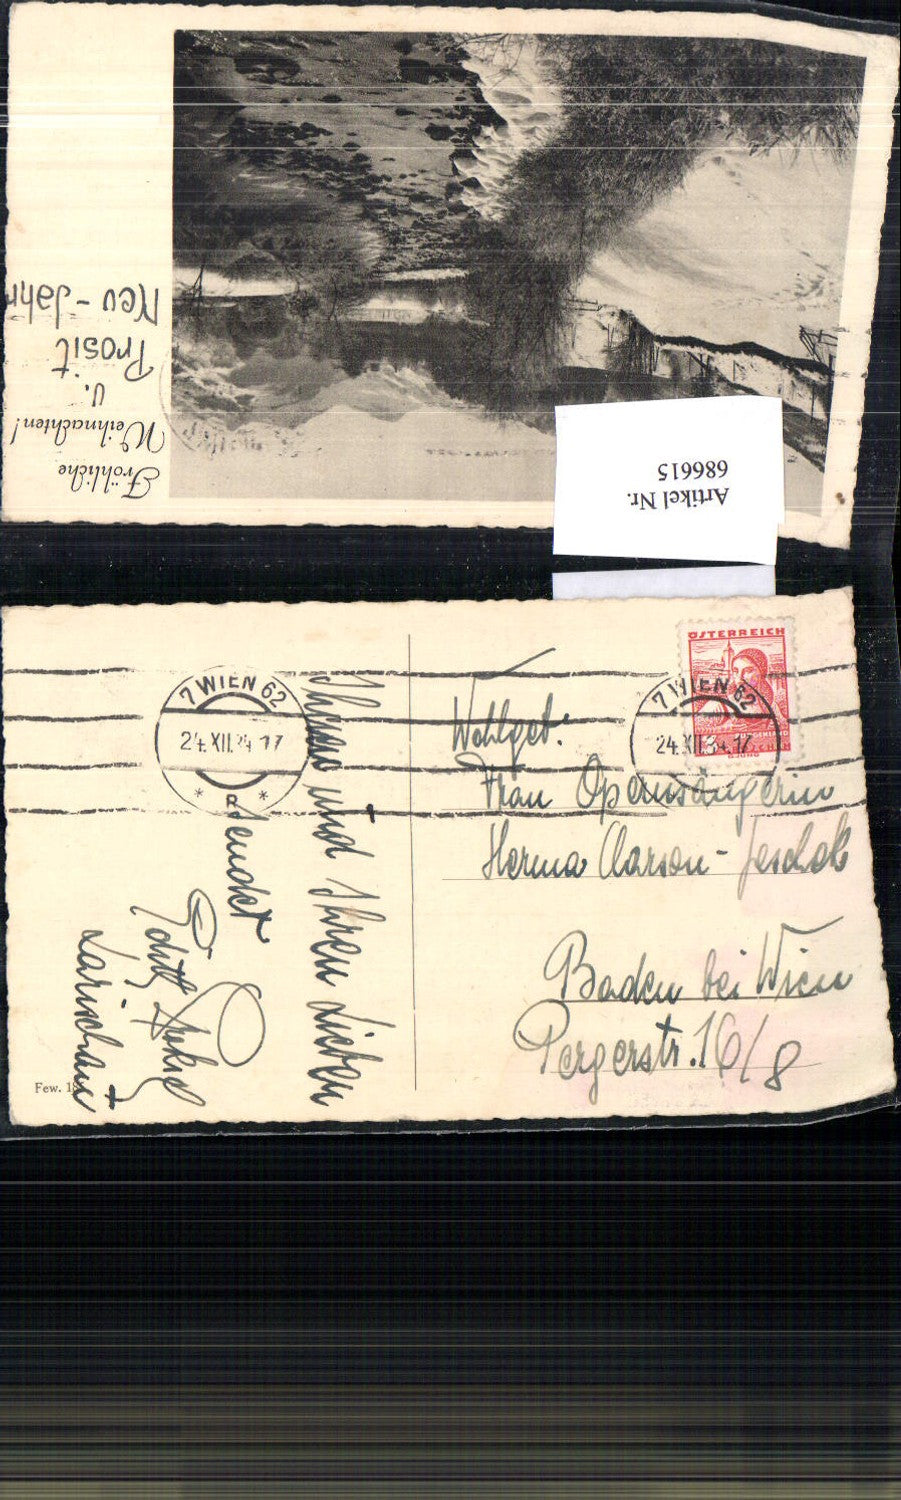 Fröhliche
Weihnachten!
u.
Prosit
Neu-Jahr
Artikel Nr.
686615
ÖSTERREICH
7 WIEN 62
24.XII.34 17
* B *
7 WIEN 62
24.XII.34.17
Wohlgeb:
Frau Opernsängerin
Herma Clarson-
Baden bei Wien
Pergerstr. 16/8
Ihnen und Ihren Lieben
sendet
Edith
Larischau
Few. 18